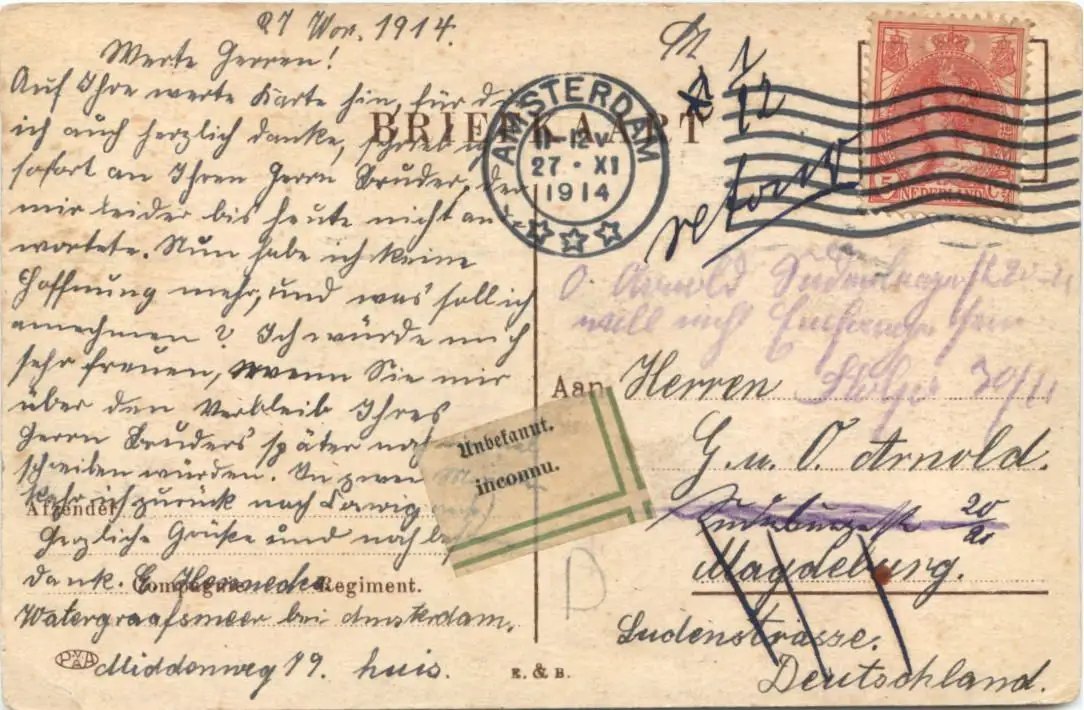 27 Nov. 1914.
Werte Herren!
Auf Ihre werte Karte hin, für die
ich auch herzlich danke, schrieb ich
sofort an Ihren Herrn Bruder, der
mir leider bis heute nicht an
wortete. Nun habe ich keine
Hoffnung mehr, und was soll ich
annehmen? Ich würde mich
sehr freuen, wenn Sie mir
über den Verbleib Ihres
Herrn Bruders später
schreiben würden. In zwei
ich zurück nach
Herzliche Grüße und noch
dank.
Watergraafsmeer bei Amsterdam.
Middenweg 79. huis.
Afzender
Compagnie Regiment.
P.v.A.
BRIEFKAART
AMSTERDAM
11-12V
27 · XI
1914
1
12
retour
5 NEDERLAND CT
O. Arnold
will nicht
30/11
Unbekannt.
inconnu.
Aan Herren
G. u. O. Arnold.
20
Magdeburg.
Sudenstrasse.
Deutschland.
E. & B.